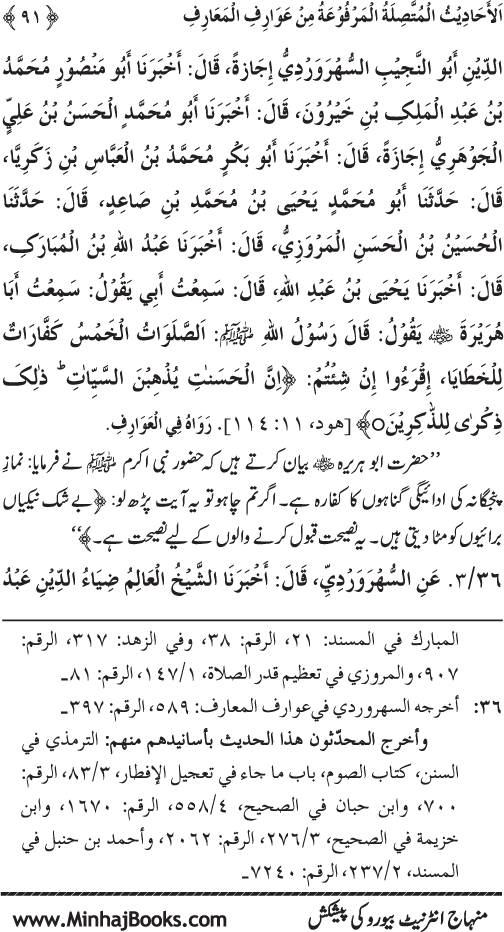 اَلأَحَادِيْثُ الْمُتَّصِلَةُ الْمَرْفُوْعَةُ مِنْ عَوَارِفِ الْمَعَارِفِ ﴿ ٩١ ﴾
الدِّيْنِ أَبُو النَّجِيْبِ السُّهْرَوَرْدِيُّ إِجَازَةً، قَالَ: أَخْبَرَنَا أَبُو مَنْصُوْرٍ مُحَمَّدُ
بْنُ عَبْدِ الْمَلِكِ بْنِ خَيْرُوْنَ، قَالَ: أَخْبَرَنَا أَبُو مُحَمَّدٍ الْحَسَنُ بْنُ عَلِيٍّ
الْجَوْهَرِيُّ إِجَازَةً، قَالَ: أَخْبَرَنَا أَبُو بَكْرٍ مُحَمَّدُ بْنُ الْعَبَّاسِ بْنِ زَكَرِيَّا،
قَالَ: حَدَّثَنَا أَبُو مُحَمَّدٍ يَحْيَى بْنُ مُحَمَّدِ بْنِ صَاعِدٍ، قَالَ: حَدَّثَنَا
الْحُسَيْنُ بْنُ الْحَسَنِ الْمَرْوَزِيُّ، قَالَ: أَخْبَرَنَا عَبْدُ اللهِ بْنُ الْمُبَارَكِ،
قَالَ: أَخْبَرَنَا يَحْيَى بْنُ عَبْدِ اللهِ، قَالَ: سَمِعْتُ أَبِي يَقُوْلُ: سَمِعْتُ أَبَا
هُرَيْرَةَ ؓ يَقُوْلُ: قَالَ رَسُوْلُ اللهِ ﷺ: اَلصَّلَوَاتُ الْخَمْسُ كَفَّارَاتٌ
لِلْخَطَايَا، اِقْرَءُوا إِنْ شِئْتُمْ: ﴿اِنَّ الْحَسَنٰتِ يُذْهِبْنَ السَّيِّاٰتِ ؕ ذٰلِکَ
ذِکْرٰی لِلذّٰکِرِیْنَ﴾ [هود، ١١: ١١٤]. رَوَاهُ فِي الْعَوَارِفِ.
’’حضرت ابو ہریرہ ؓ بیان کرتے ہیں کہ حضور نبی اکرم ﷺ نے فرمایا: نمازِ
پنجگانہ کی ادائیگی گناہوں کا کفارہ ہے۔ اگر تم چاہو تو یہ آیت پڑھ لو: ﴿بے شک نیکیاں
برائیوں کو مٹا دیتی ہیں۔ یہ نصیحت قبول کرنے والوں کے لیے نصیحت ہے۔﴾‘‘
٣/٣٦. عَنِ السُّهْرَوَرْدِيِّ، قَالَ: أَخْبَرَنَا الشَّيْخُ الْعَالِمُ ضِيَاءُ الدِّيْنِ عَبْدُ
المبارك في المسند: ٢١، الرقم: ٣٨، وفي الزهد: ٣١٧، الرقم:
٩٠٧، والمروزي في تعظيم قدر الصلاة، ١/١٤٧، الرقم: ٨١ـ
٣٦: أخرجه السهروردي في عوارف المعارف: ٥٨٩، الرقم: ٣٩٧ـ
وأخرج المحدّثون هذا الحديث بأسانيدهم منهم: الترمذي في
السنن، كتاب الصوم، باب ما جاء في تعجيل الإفطار، ٣/٨٣، الرقم:
٧٠٠، وابن حبان في الصحيح، ٤/٥٥٨، الرقم: ١٦٧٠، وابن
خزيمة في الصحيح، ٣/٢٧٦، الرقم: ٢٠٦٢، وأحمد بن حنبل في
المسند، ٢/٢٣٧، الرقم: ٧٢٤٠ـ
منہاج انٹرنیٹ بیورو کی پیشکش www.MinhajBooks.com